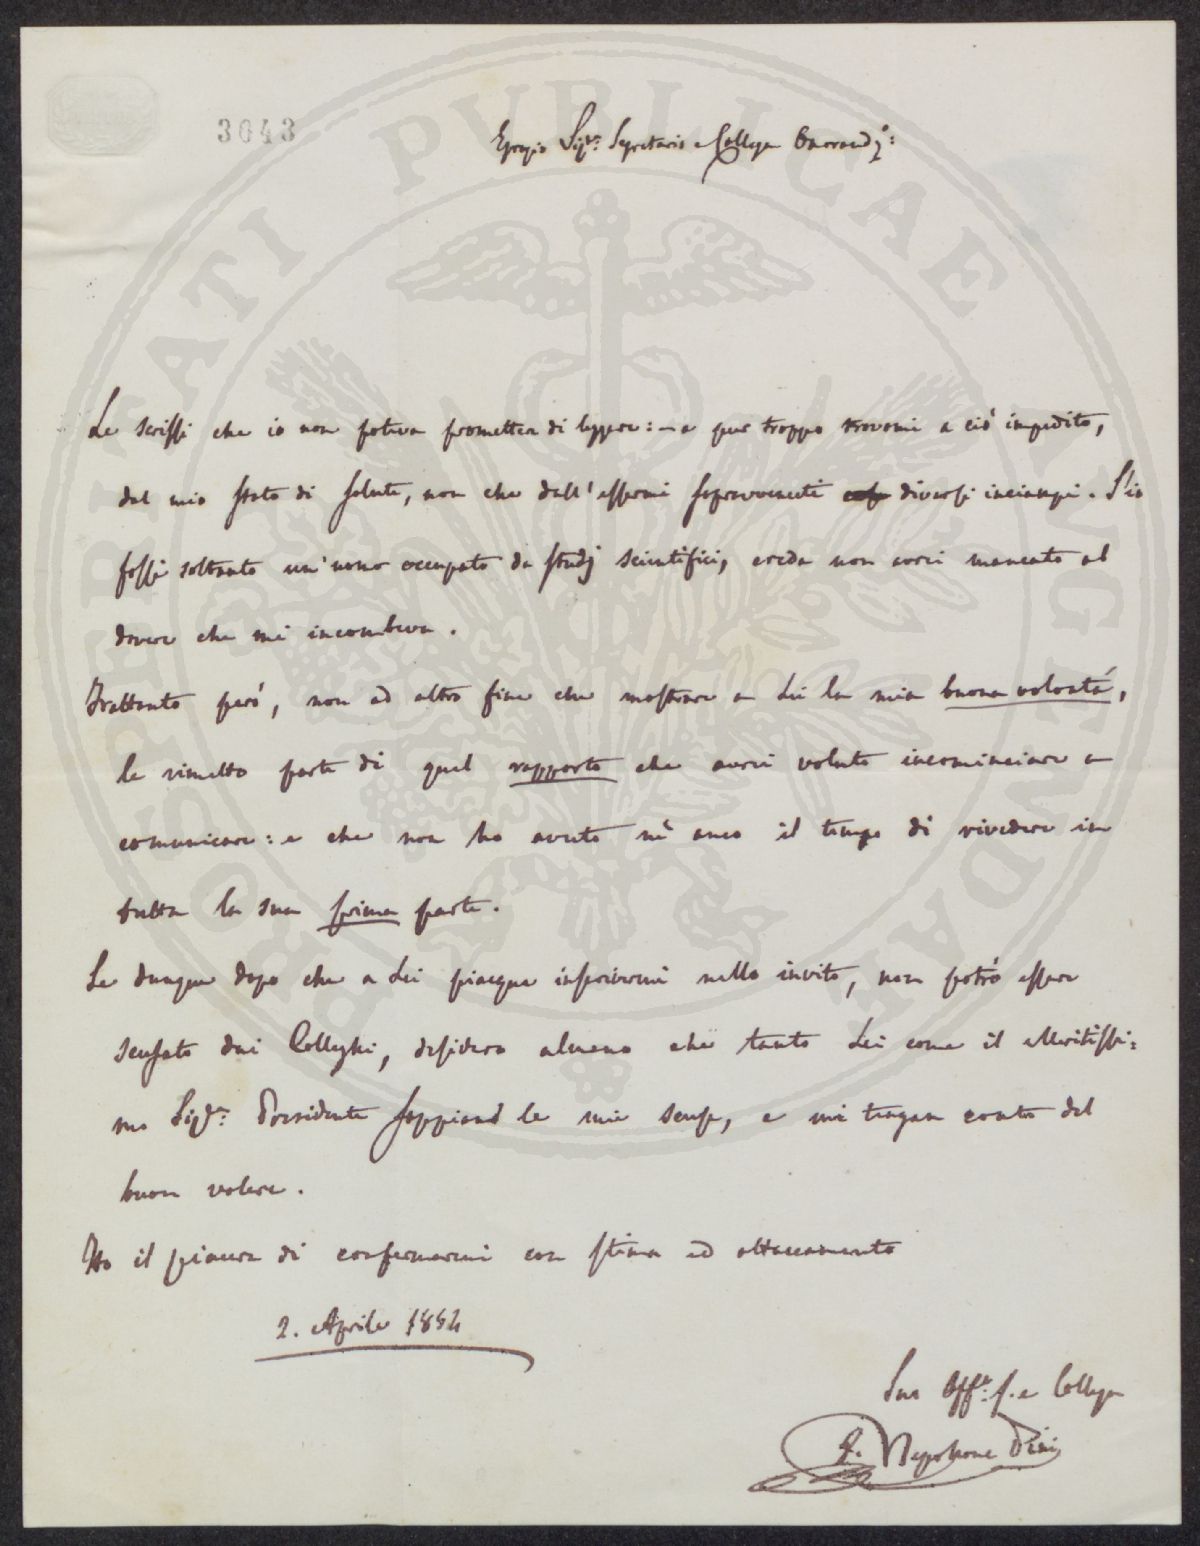 3643
Egregio Sigr: Segretario e Collega
Le scrissi che io non poteva prometter di leggere: — e pur troppo trovomi a ciò impedito,
dal mio stato di salute, non che dall'essermi sopravvenuti diversi inciampi. S'io
fossi soltanto un'uomo occupato da studj scientifici, creda non avrei mancato al
dovere che mi incombeva.
Frattanto però, non ad altro fine che mostrare a Lei la mia buona volontà,
le rimetto parte di quel rapporto che avrei voluto incominciare a
comunicare: e che non ho avuto nè anco il tempo di rivedere in
tutta la sua prima parte.
Se dunque dopo che a Lei piacque inscrivermi nello invito, non potrò essere
scusato dai Colleghi, desidero almeno che tanto Lei come il Meritissi=
mo Sigr: Presidente sappiano le mie scuse, e mi tengan conto del
buon volere.
Ho il piacere di confermarmi con stima ed attaccamento
2. Aprile 1854
Suo Affo: S. e Collega
Napoleone Pini
PROSPERITATI PVBLICAE AVGENDAE